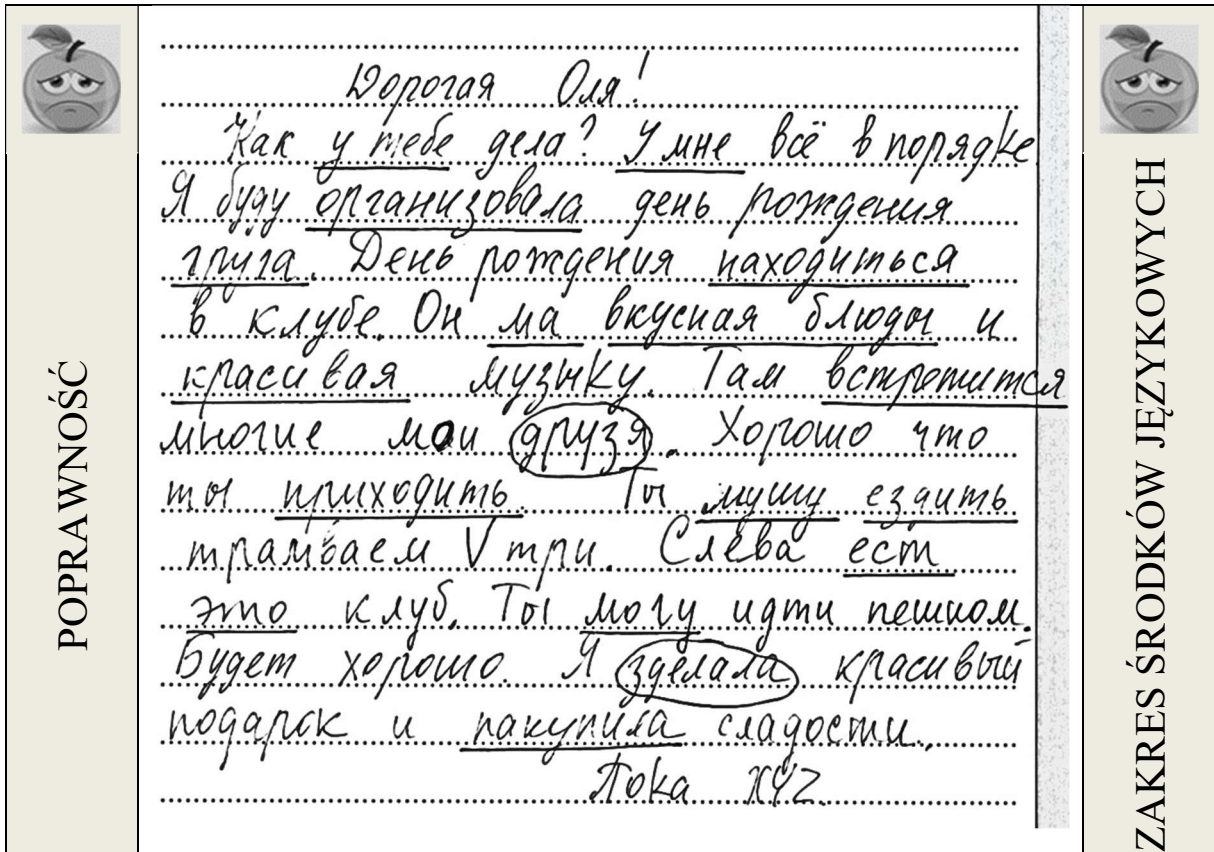 POPRAWNOŚĆ
Дорогая Оля!
Как у тебе дела? У мне всё в порядке
Я буду организовала день рождения
груга. День рождения находиться
в клубе. Он ма вкусная блюды и
красивая музыку. Там встретится
многие мои друзя. Хорошо что
ты приходить. Ты мушу ездить
трамваем V три. Слева ест
это клуб. Ты могу идти пешком.
Будет хорошо. Я зделала красивый
подарок и пакупила сладости.
Пока XYZ
ZAKRES ŚRODKÓW JĘZYKOWYCH